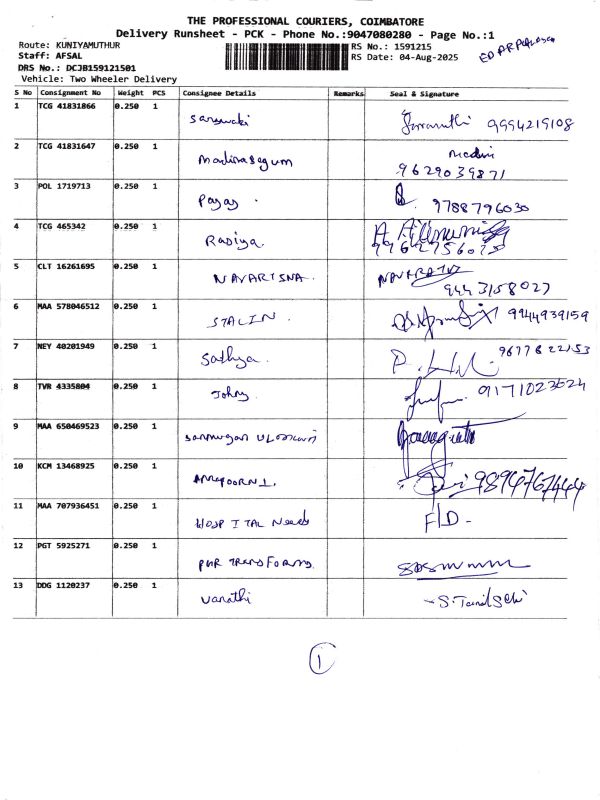 THE PROFESSIONAL COURIERS, COIMBATORE
Delivery Runsheet - PCK - Phone No.:9047080280 - Page No.:1
Route: KUNIYAMUTHUR
Staff: AFSAL
DRS No.: DCJB159121501
Vehicle: Two Wheeler Delivery
RS No.: 1591215
RS Date: 04-Aug-2025
S No Consignment No Weight PCS Consignee Details Remarks Seal & Signature
1 TCG 41831866 0.250 1 9994219108
2 TCG 41831647 0.250 1 Madinabegum
9629039871
3 POL 1719713 0.250 1 9788796030
4 TCG 465342 0.250 1 Raziya.
5 CLT 16261695 0.250 1 NAVARTSNA.
9443158027
6 MAA 578046512 0.250 1 STALIN. 9944939159
7 NEY 40201949 0.250 1 Sathya. 9677822153
8 TVR 4335804 0.250 1 Johny 9171023624
9 MAA 650469523 0.250 1
10 KCM 13468925 0.250 1 9894767444
11 MAA 707936451 0.250 1 HOSPITAL Needs F/D-
12 PGT 5925271 0.250 1
13 DDG 1120237 0.250 1 Vanathi S. Tamil Selvi
1